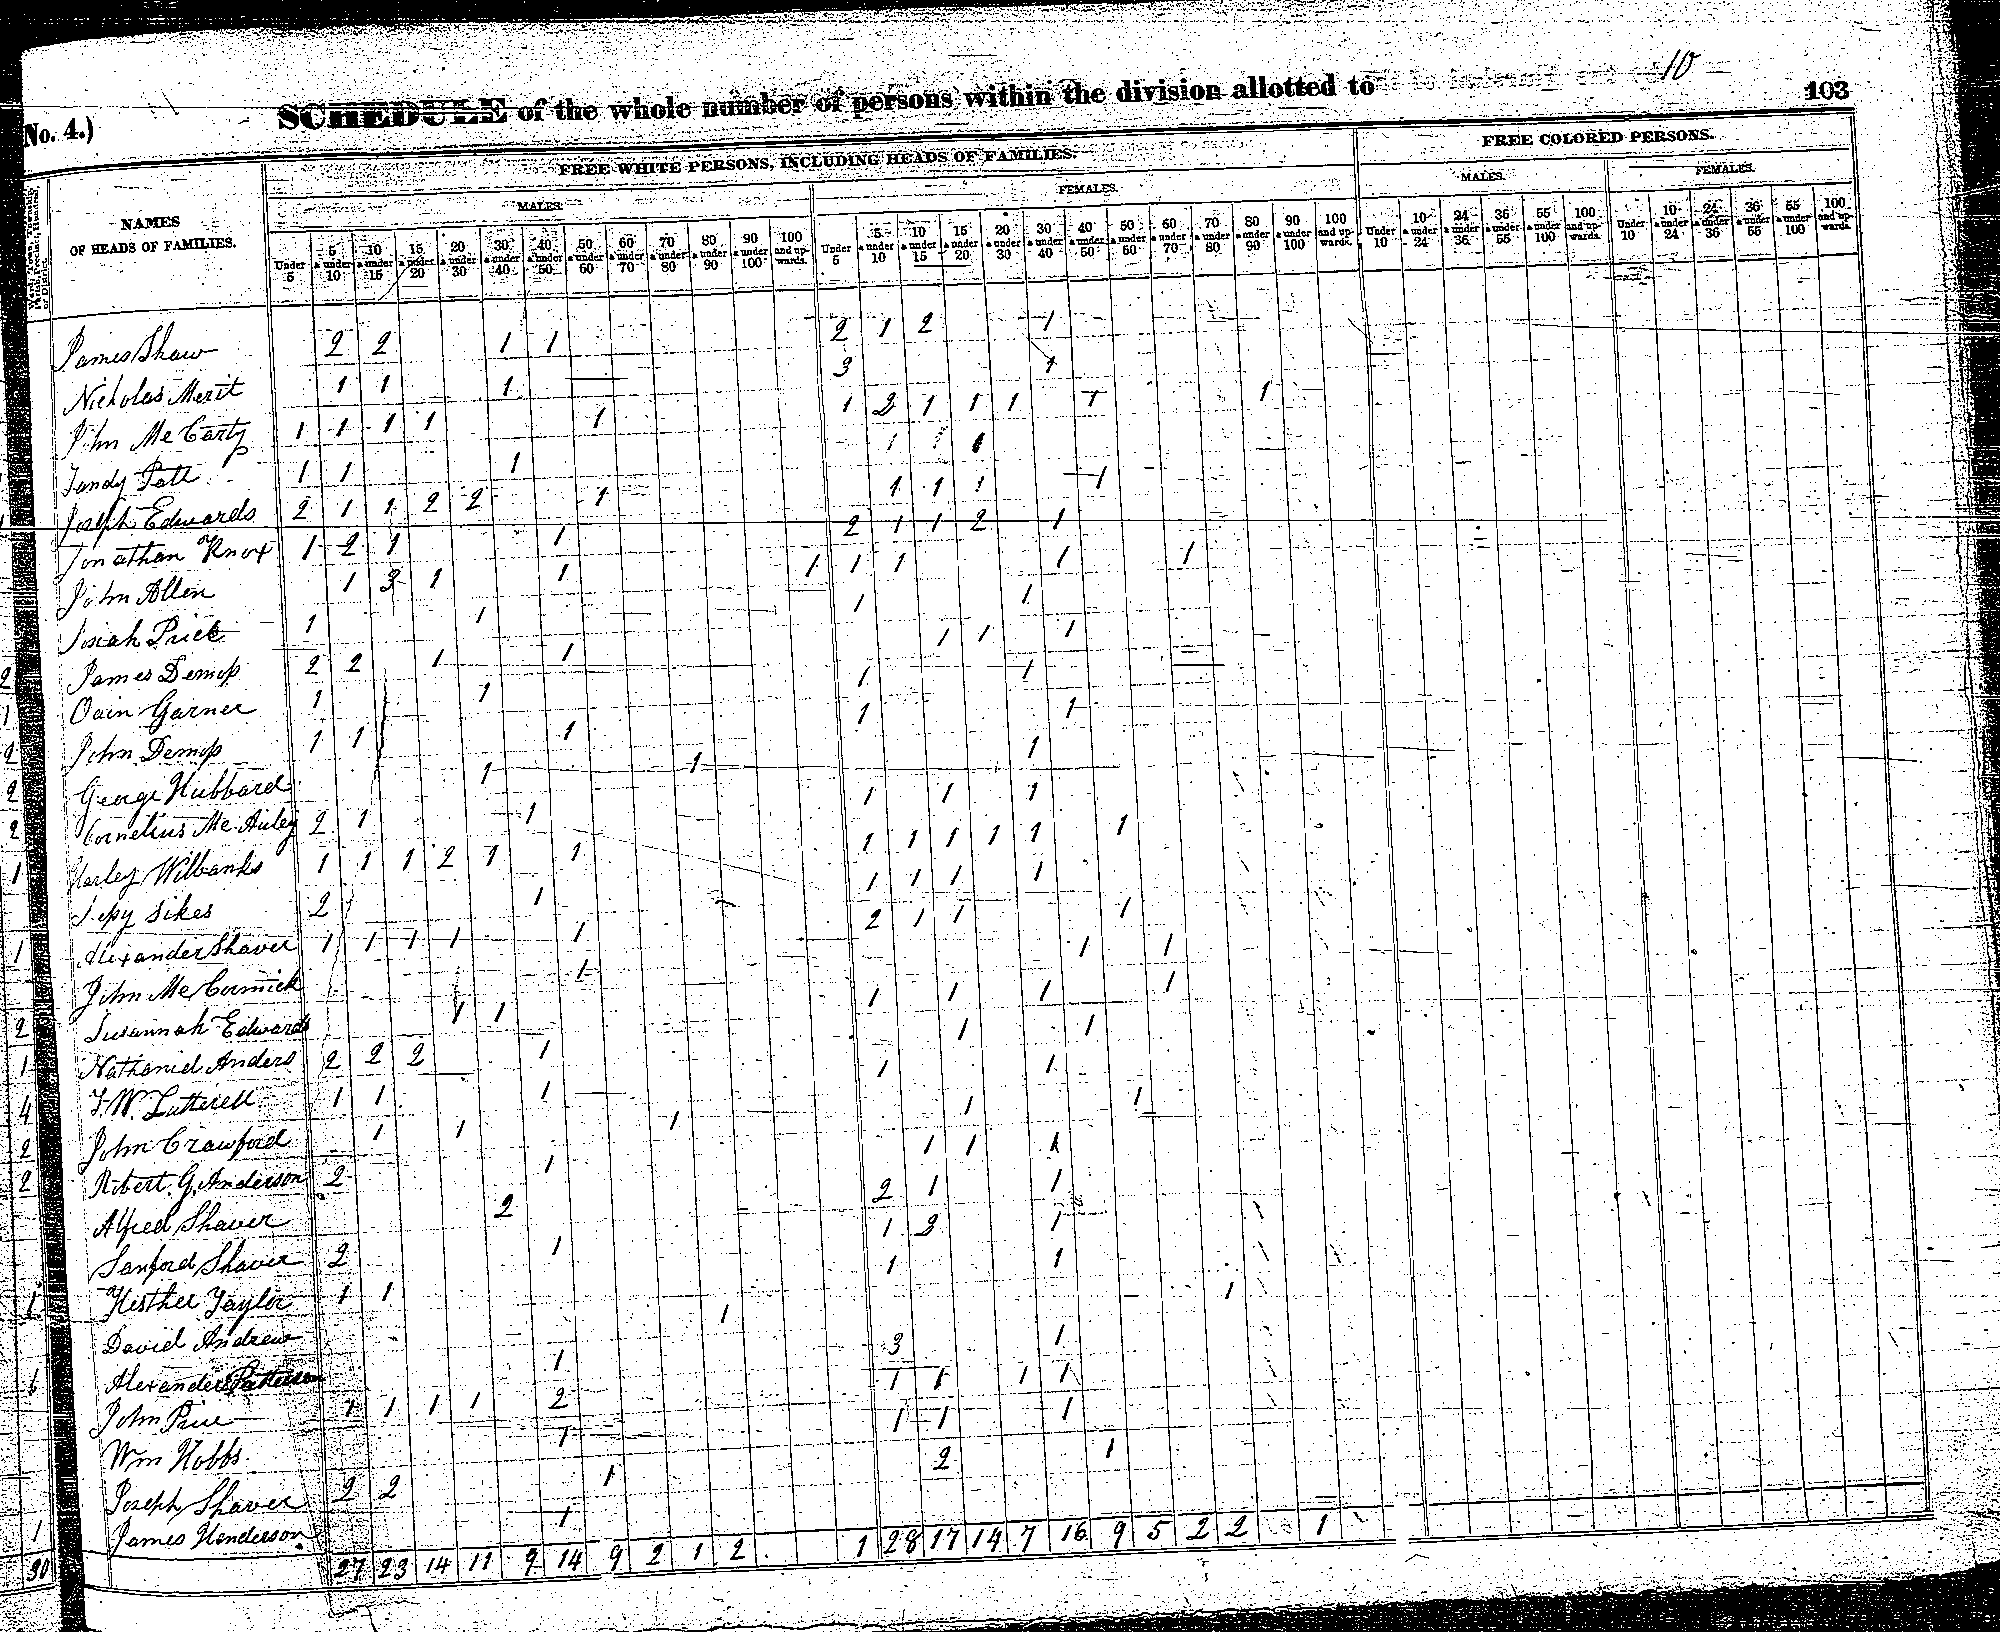 10
SCHEDULE of the whole number of persons within the division allotted to
103
No. 4.)
FREE WHITE PERSONS, INCLUDING HEADS OF FAMILIES.
FREE COLORED PERSONS.
MALES. FEMALES. MALES. FEMALES.
NAMES
OF HEADS OF FAMILIES.
Under 5 | 5 & under 10 | 10 & under 15 | 15 & under 20 | 20 & under 30 | 30 & under 40 | 40 & under 50 | 50 & under 60 | 60 & under 70 | 70 & under 80 | 80 & under 90 | 90 & under 100 | 100 and upwards.
Under 5 | 5 & under 10 | 10 & under 15 | 15 & under 20 | 20 & under 30 | 30 & under 40 | 40 & under 50 | 50 & under 60 | 60 & under 70 | 70 & under 80 | 80 & under 90 | 90 & under 100 | 100 and upwards.
Under 10 | 10 & under 24 | 24 & under 36 | 36 & under 55 | 55 & under 100 | 100 and upwards.
Under 10 | 10 & under 24 | 24 & under 36 | 36 & under 55 | 55 & under 100 | 100 and upwards.
James Shaw 2 2 1 1 2 1 2 1
Nicholas Merit 1 1 1 3 1
John McCarty 1 1 1 1 1 1 2 1 1 1 1 1
Tandy Pate 1 1 1 1 1 1
Joseph Edwards 2 1 1 2 2 1 1 1 1 1
Jonathan Knox 1 2 1 1 2 1 1 2 1
John Allen 1 3 1 1 1 1 1 1 1
Josiah Price 1 1 1 1
James Demop 2 2 1 1 1 1 1
Garner 1 1 1 1
John Demop 1 1 1 1 1
George Hubbard 1 1 1
Cornelius McAuley 2 1 1 1 1 1
Harley Wilbanks 1 1 1 2 1 1 1 1 1 1 1 1
Sikes 2 1 1 1 1 1
Alexander Shaver 1 1 1 1 1 2 1 1 1
John McCormick 1 1 1
Susannah Edwards 1 1 1 1 1 1
Nathaniel Anders 2 2 2 1 1 1
Lutterell 1 1 1 1 1
John Crawford 1 1 1 1 1
Robert G. Anderson 2 1 1 1 1
Alfred Shaver 2 2 1 1
Sanford Shaver 2 1 1 2 1
Hesther Taylor 1 1 1 1
David Andrew 1 1
Alexander Patterson 1 3 1
John Price 1 1 1 1 2 1 1 1 1
Wm Hobbs 1 1 1 1
Joseph Shaver 2 2 1 2 1
James Henderson 1
30 27 23 14 11 9 14 9 2 1 2 1 28 17 14 7 16 9 5 2 2 1